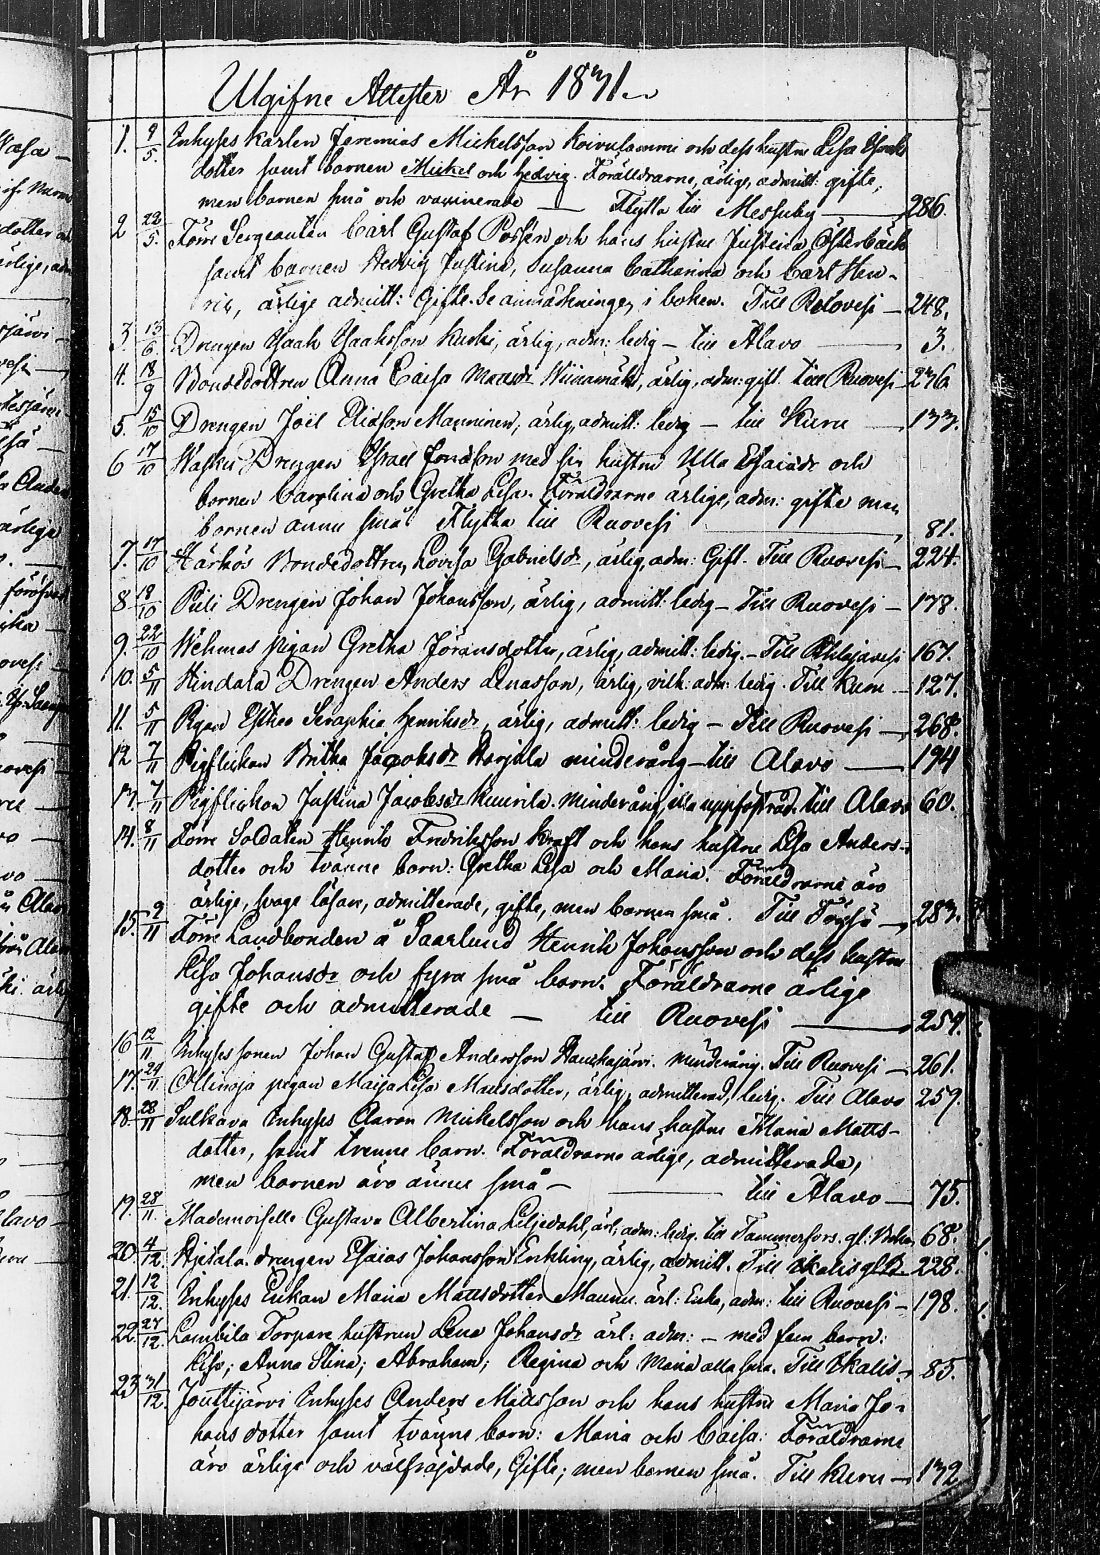 Utgifne Attester År 1831.
1. 9/5. Inhyses karlen Jeremias Mickelsson Koivulammi och dess hustru Lisa Isaks
dotter samt barnen Mickel och Hedvig. Föräldrarne, ärlige, admitt: gifte,
men barnen små och vaccinerade — Flytta till Messuby — 286.
2 22/5. Förre Sergeanten Carl Gustaf Possén och hans hustru Justina Österbäck
samt barnen Hedvig Justina, Susanna Catharina och Carl Hen-
ric, ärlige admitt: Gifte. Se anmärkningen i boken. Till Relovesi — 248.
3. 13/6 Drengen Isaak Isaaksson Kurki, ärlig, adm: ledig — till Alavo — 3.
4. 18/9 Bondedottren Anna Caisa Mattsdr Wiinamäki, ärlig, adm: gift. till Ruovesi — 236.
5. 15/10 Drengen Joël Eliasson Manninen, ärlig, admitt: ledig — till Kuru — 133.
6 17/10 Drengen Israel med sin hustru Ulla Esaiadr och
barnen Carolina och Gretha Lisa. Föräldrarne ärlige, adm: gifte men
barnen ännu små Flytta till Ruovesi — 81.
7. 17/10 Härkös Bondedottren Lovisa Gabrielsdr, ärlig, adm: Gift. Till Ruovesi — 224.
8 18/10 Puli Drengen Johan Johansson, ärlig, admitt: ledig — Till Ruovesi — 178.
9. 22/10 Wehmas pigan Gretha Jöransdotter, ärlig, admitt: ledig. — Till Pihlajavesi 167.
10. 5/11 Hindala Drengen Anders Enasson, ärlig, vilk: adm: ledig. Till Kuru — 127.
11. 5/11 Pigan Esther Seraphia Henriksdr, ärlig, admitt: ledig — Till Ruovesi — 268.
12 7/11 Pigflickan Britha Jacobsdr Harjula minderårig — till Alavo — 194
13. 7/11 Pigflickan Justina Jacobsdr Kuurila. Minderårig, illa uppfostrad. till Alavo 60.
14. 8/11 Förre Soldaten Henrik Fredriksson Kraft och hans hustru Lisa Anders-
dotter och tvänne barn: Gretha Lisa och Maria. Föräldrarne äro
ärlige, svage läsan, admitterade, gifte, men barnen små. Till — 283.
15. 9/11 Förre Landbonden å Saarlund Henrik Johansson och dess hustru
Lisa Johansdr och fyra små barn. Föräldrarne ärlige
gifte och admitterade — till Ruovesi — 254.
16 12/11 Inhyses sonen Johan Gustaf Andersson Hauskajärvi. minderårig. Till Ruovesi — 261.
17. 24/11 Ollinoja pigan Maija Lisa Mattsdotter, ärlig, admitterad, ledig. Till Alavo 259.
18. 28/11 Sulkava Inhyses Aaron Mickelsson och hans hustru Maria Matts-
dotter, samt trenne barn. Föräldrarne ärlige, admitterade,
men barnen äro ännu små — till Alavo — 75.
19. 28/11. Mademoiselle Gustava Albertina Liljedahl, ärl, adm: ledig. till Tammerfors. gl: Boken 68.
20 4/12. drengen Esaias Johansson Enkling, ärlig, admitt. Till Ikalis gl. B. 228.
21. 12/12. Inhyses Enkan Maria Mattsdotter Maunu. ärl: Enka, adm: till Ruovesi — 198.
22. 27/12. Lambila Torpare hustrun Lena Johansdr ärl: adm: — med fem barn:
Lisa; Anna Stina; Abraham; Regina och Maria alla små. Till Ikalis — 85.
23 31/12. Jouttijärvi Inhyses Anders Mattsson och hans hustru Maria Jo-
hansdotter samt tvänne barn: Maria och Caisa: Föräldrarne
äro ärlige och välfräjdade, Gifte; men barnen små. Till Kuru — 132